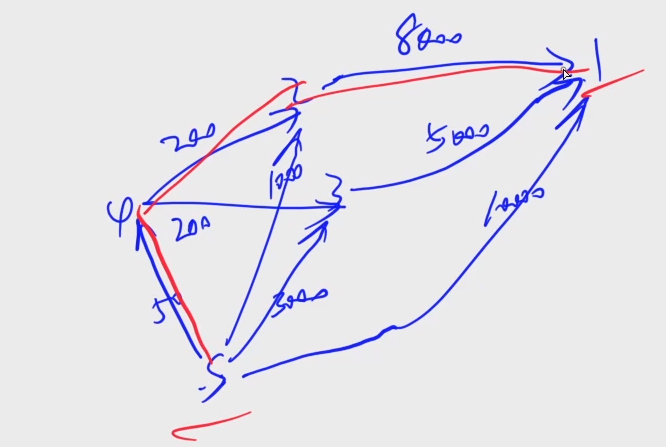 8000
1
2
200
5000
1000
3
4
200
10000
3000
5
5